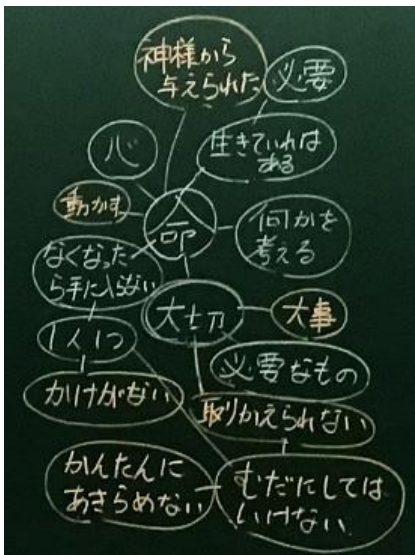 神様から
与えられた
必要
心
生きていれば
ある
動かす
命
何かを
考える
なくなった
ら手に入らない
大切
大事
1人1つ
必要なもの
かけがない
取りかえられない
かんたんに
あきらめない
むだにしては
いけない